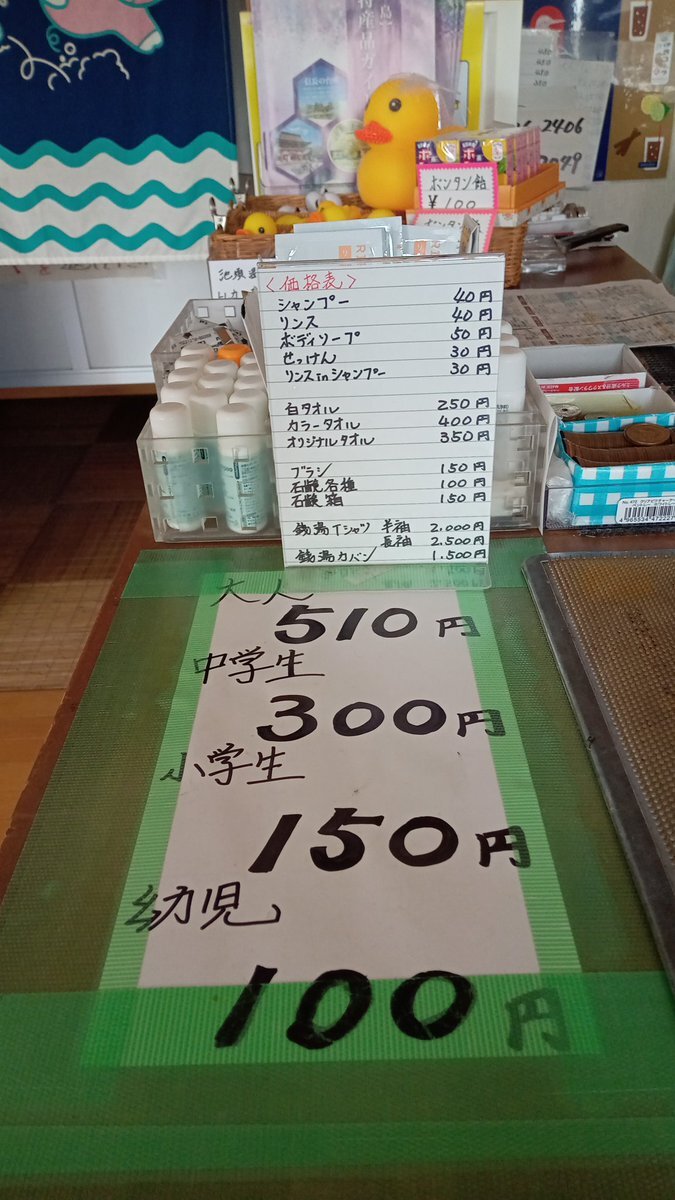 ボンタン飴
¥100
2406
<価格表>
シャンプー 40円
リンス 40円
ボディソープ 50円
せっけん 30円
リンスinシャンプー 30円
白タオル 250円
カラータオル 400円
オリジナルタオル 350円
ブラシ 150円
石鹸各種 100円
石鹸箱 150円
銭湯Tシャツ 半袖 2.000円
長袖 2.500円
銭湯カバン 1.500円
大人
510円
中学生
300円
小学生
150円
幼児
100円